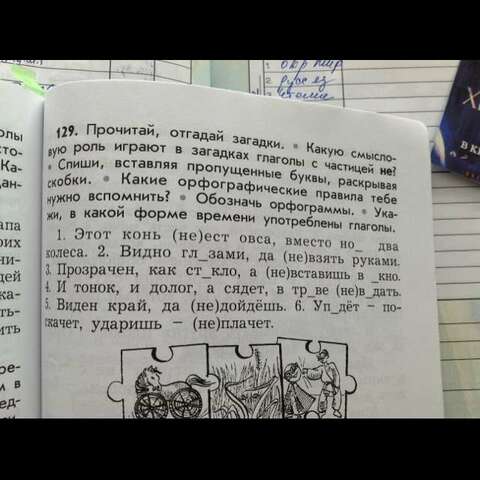 1 окр мир
2 русс яз
129. Прочитай, отгадай загадки. • Какую смысло-
вую роль играют в загадках глаголы с частицей не?
• Спиши, вставляя пропущенные буквы, раскрывая
скобки. • Какие орфографические правила тебе
нужно вспомнить? • Обозначь орфограммы. • Ука-
жи, в какой форме времени употреблены глаголы.
1. Этот конь (не)ест овса, вместо но_ два
колеса. 2. Видно гл_зами, да (не)взять руками.
3. Прозрачен, как ст_кло, а (не)вставишь в _кно.
4. И тонок, и долог, а сядет, в тр_ве (не)в_дать.
5. Виден край, да (не)дойдёшь. 6. Уп_дёт – по-
скачет, ударишь – (не)плачет.